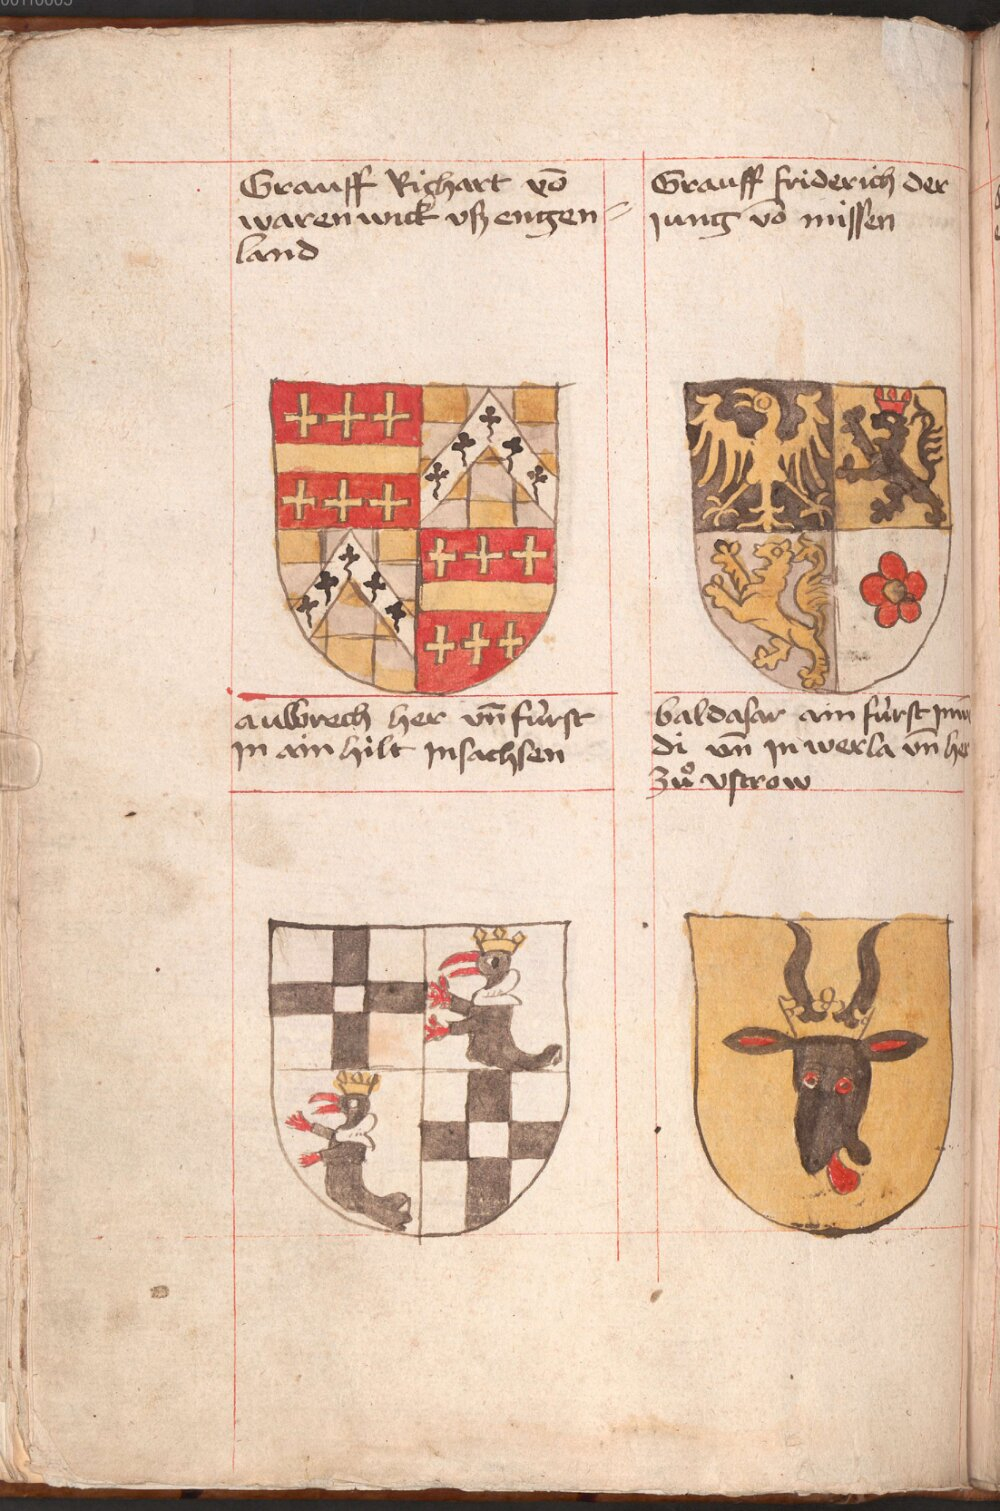 Grauff Richart vō
warenwick vß engen
land
Grauff friderich der
jung vō missen
aulbrech her vn̄ fürst
In ain hilt In sachsen
baldasar ain fürst
di vn̄ In werla vn̄ her
Zuͦ vstrow